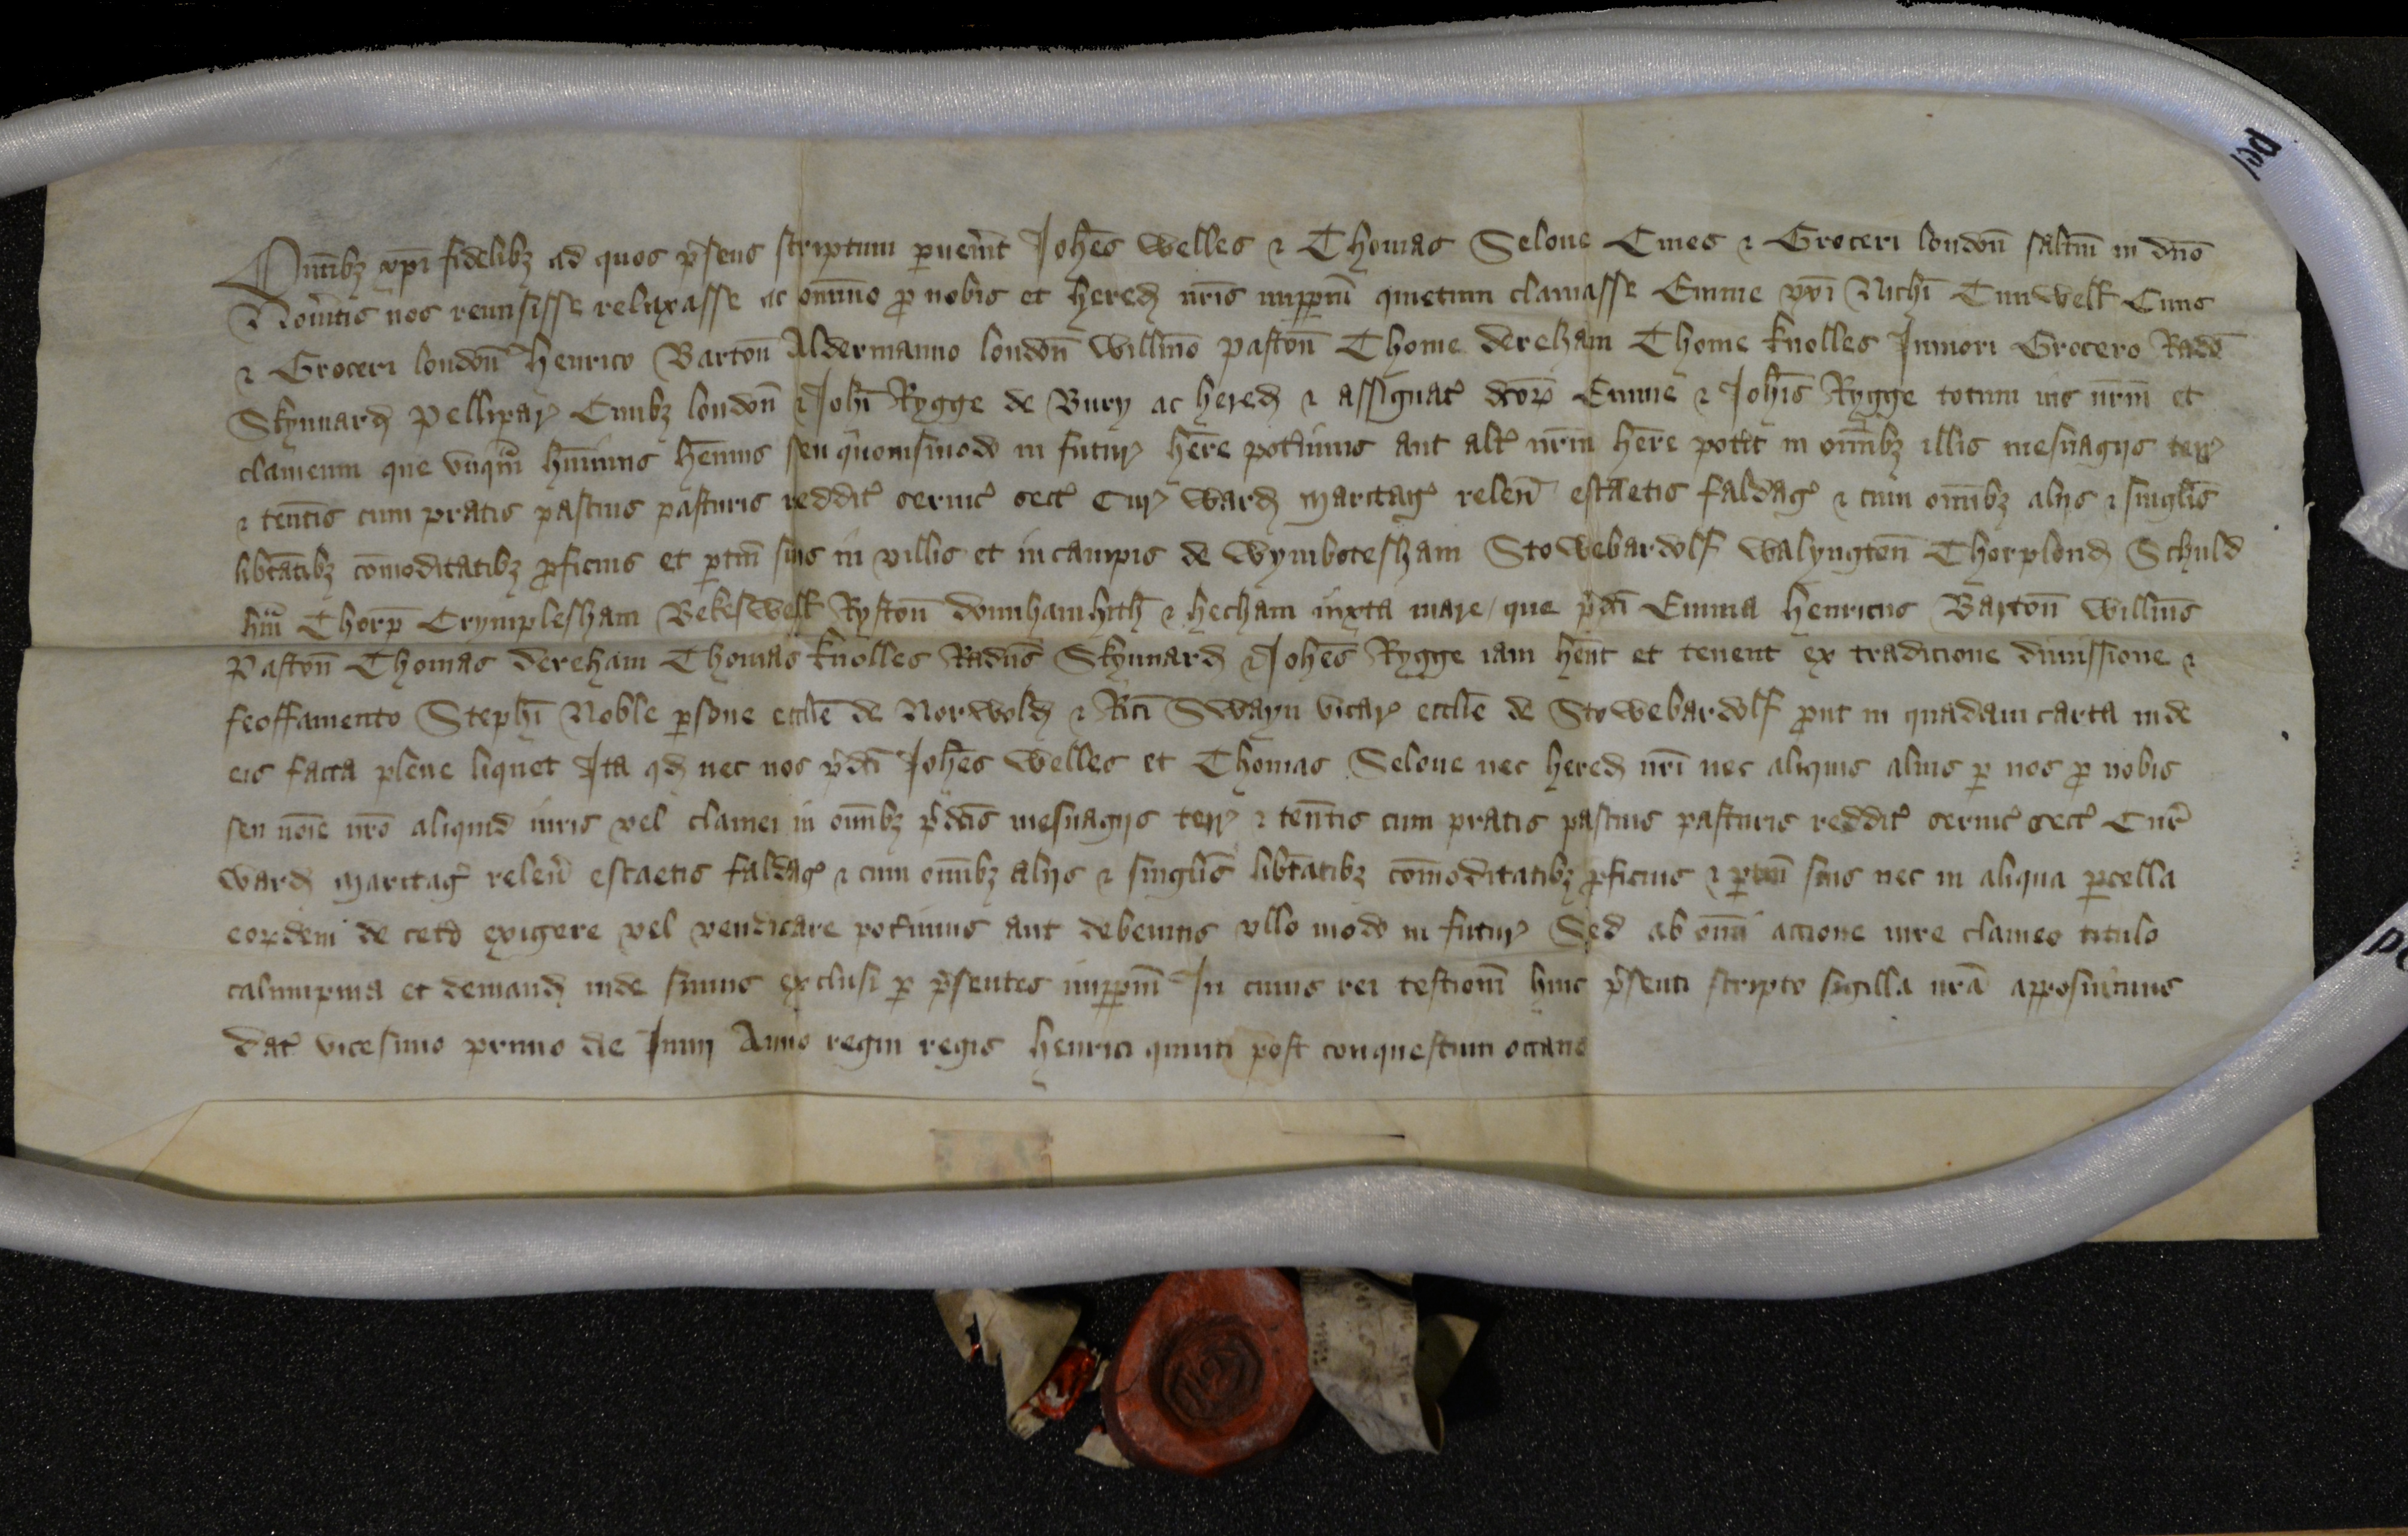 Omībȝ xp̄i fidelibȝ ad quos p̄sens scriptum puen̄it Joh̄es Welles ⁊ Thomas Selone Ciues ⁊ Groceri london̄ sal̄tm in dn̄o
Nou̔itis nos remisisse relaxasse ac om̄ino p nobis et hered nr̄is imppm̄ quietum clamasse Emme vxi Nich̄i Cunwell Ciuis
⁊ Groceri london̄ Henrico Barton̄ Aldermanno london̄ Will̄mo paston̄ Thome dereham Thome knolles Juniori Grocero Rad̄o
Skynnard Pellipar Ciuibȝ london̄ ⁊ Joh̄i Rygge de Bury ac hered ⁊ assignat dc̄oꝝ Emme ⁊ Joh̄is Rygge totum ius nr̄m et
clameum que vnqm̄ h̄uimus h̄emus seu quouismodo in futur h̄ere pot̄imus aut alt nr̄m h̄ere pot̄it in om̄ibȝ illis mesuagijs terr
⁊ ten̄tis cum pratis pascuis pasturis reddit seruic sect Cur Ward maritag releū escaetis faldag ⁊ cum om̄ibȝ alijs ⁊ singl̄is
lib̄tatibȝ com̄oditatibȝ pficuis et ptin̄ suis in villis et in campis de Wymbotesham Stowebardolf Walyngton̄ Thorplond Schuld
hm̄ Thorp̄ Crymplesham Bekeswell Ryston̄ downhamhith̄ ⁊ hecham iuxta mare / que p̄dc̄i Emma Henricus Barton̄ Will̄ms
Paston̄ Thomas dereham Thomas knolles Rad̄us Skynnard ⁊ Joh̄es Rygge iam h̄ent et tenent ex tradicione dimissione ⁊
feoffamento Steph̄i Noble psone eccl̄e de Norwold ⁊ Ric̄i Swayn vicar eccl̄e de Stowebardolf put in quadam carta inde
eis facta plene liquet Ita qd nec nos p̄dc̄i Joh̄es Welles et Thomas Selone nec hered nr̄i nec aliquis alius p nos p nobis
seu noīe nr̄o aliquid iuris vel clamei in om̄ibȝ p̄dc̄is mesuagijs terr ⁊ ten̄tis cum pratis pascuis pasturis reddit seruic sect Cur̄
Ward maritag releū escaetis faldag ⁊ cum om̄ibȝ alijs ⁊ singl̄is lib̄tatibȝ com̄oditatibȝ pficuis ⁊ ptin̄ suis nec in aliqua pcella
eoꝝdem de cet̄o exigere vel vendicare pot̄imus aut debemus vllo modo in futur Sed ab om̄i accione iure clameo titulo
calumpnia et demand inde simus exclusi p p̄sentes imppm̄ In cuius rei testimoī huic p̄senti scripto sigilla nr̄a apposuimus
dat vicesimo primo die Junij Anno regni regis Henrici quinti post conquestum octauo